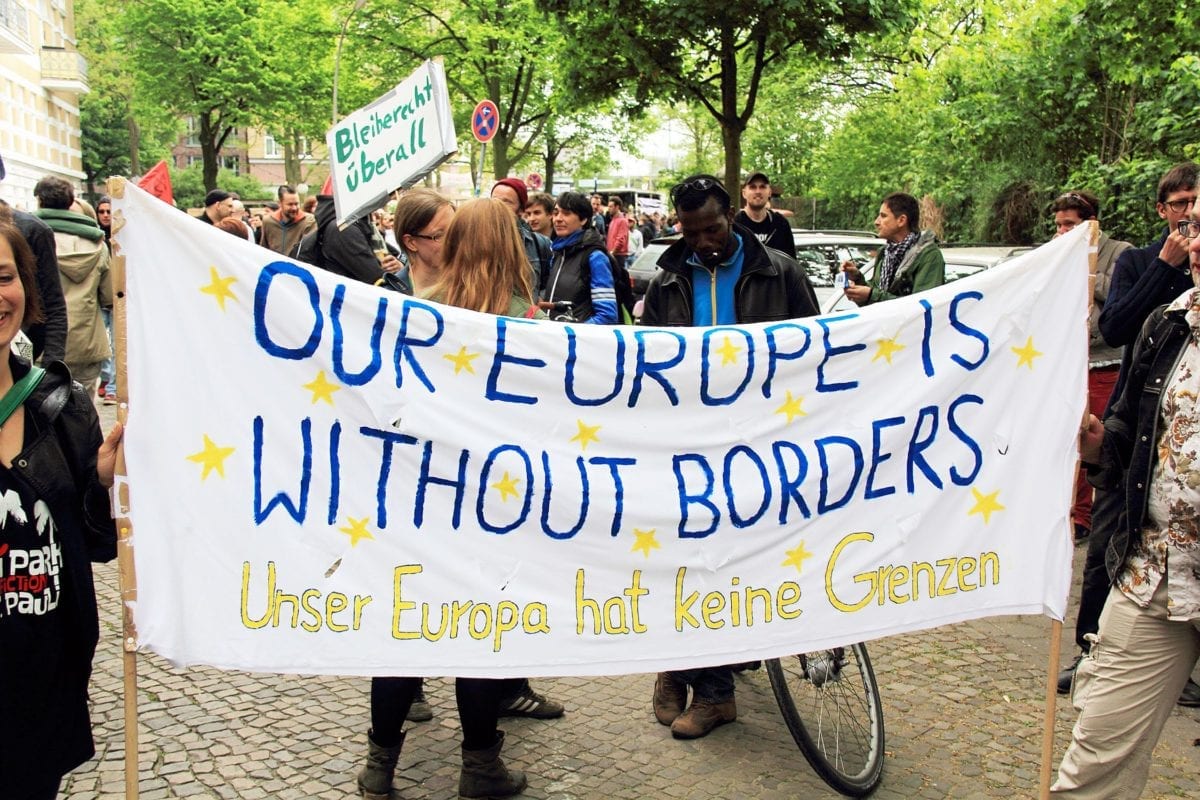 Bleiberecht
überall
OUR EUROPE IS
WITHOUT BORDERS
Unser Europa hat keine Grenzen
PARK
FICTION
PAULI!